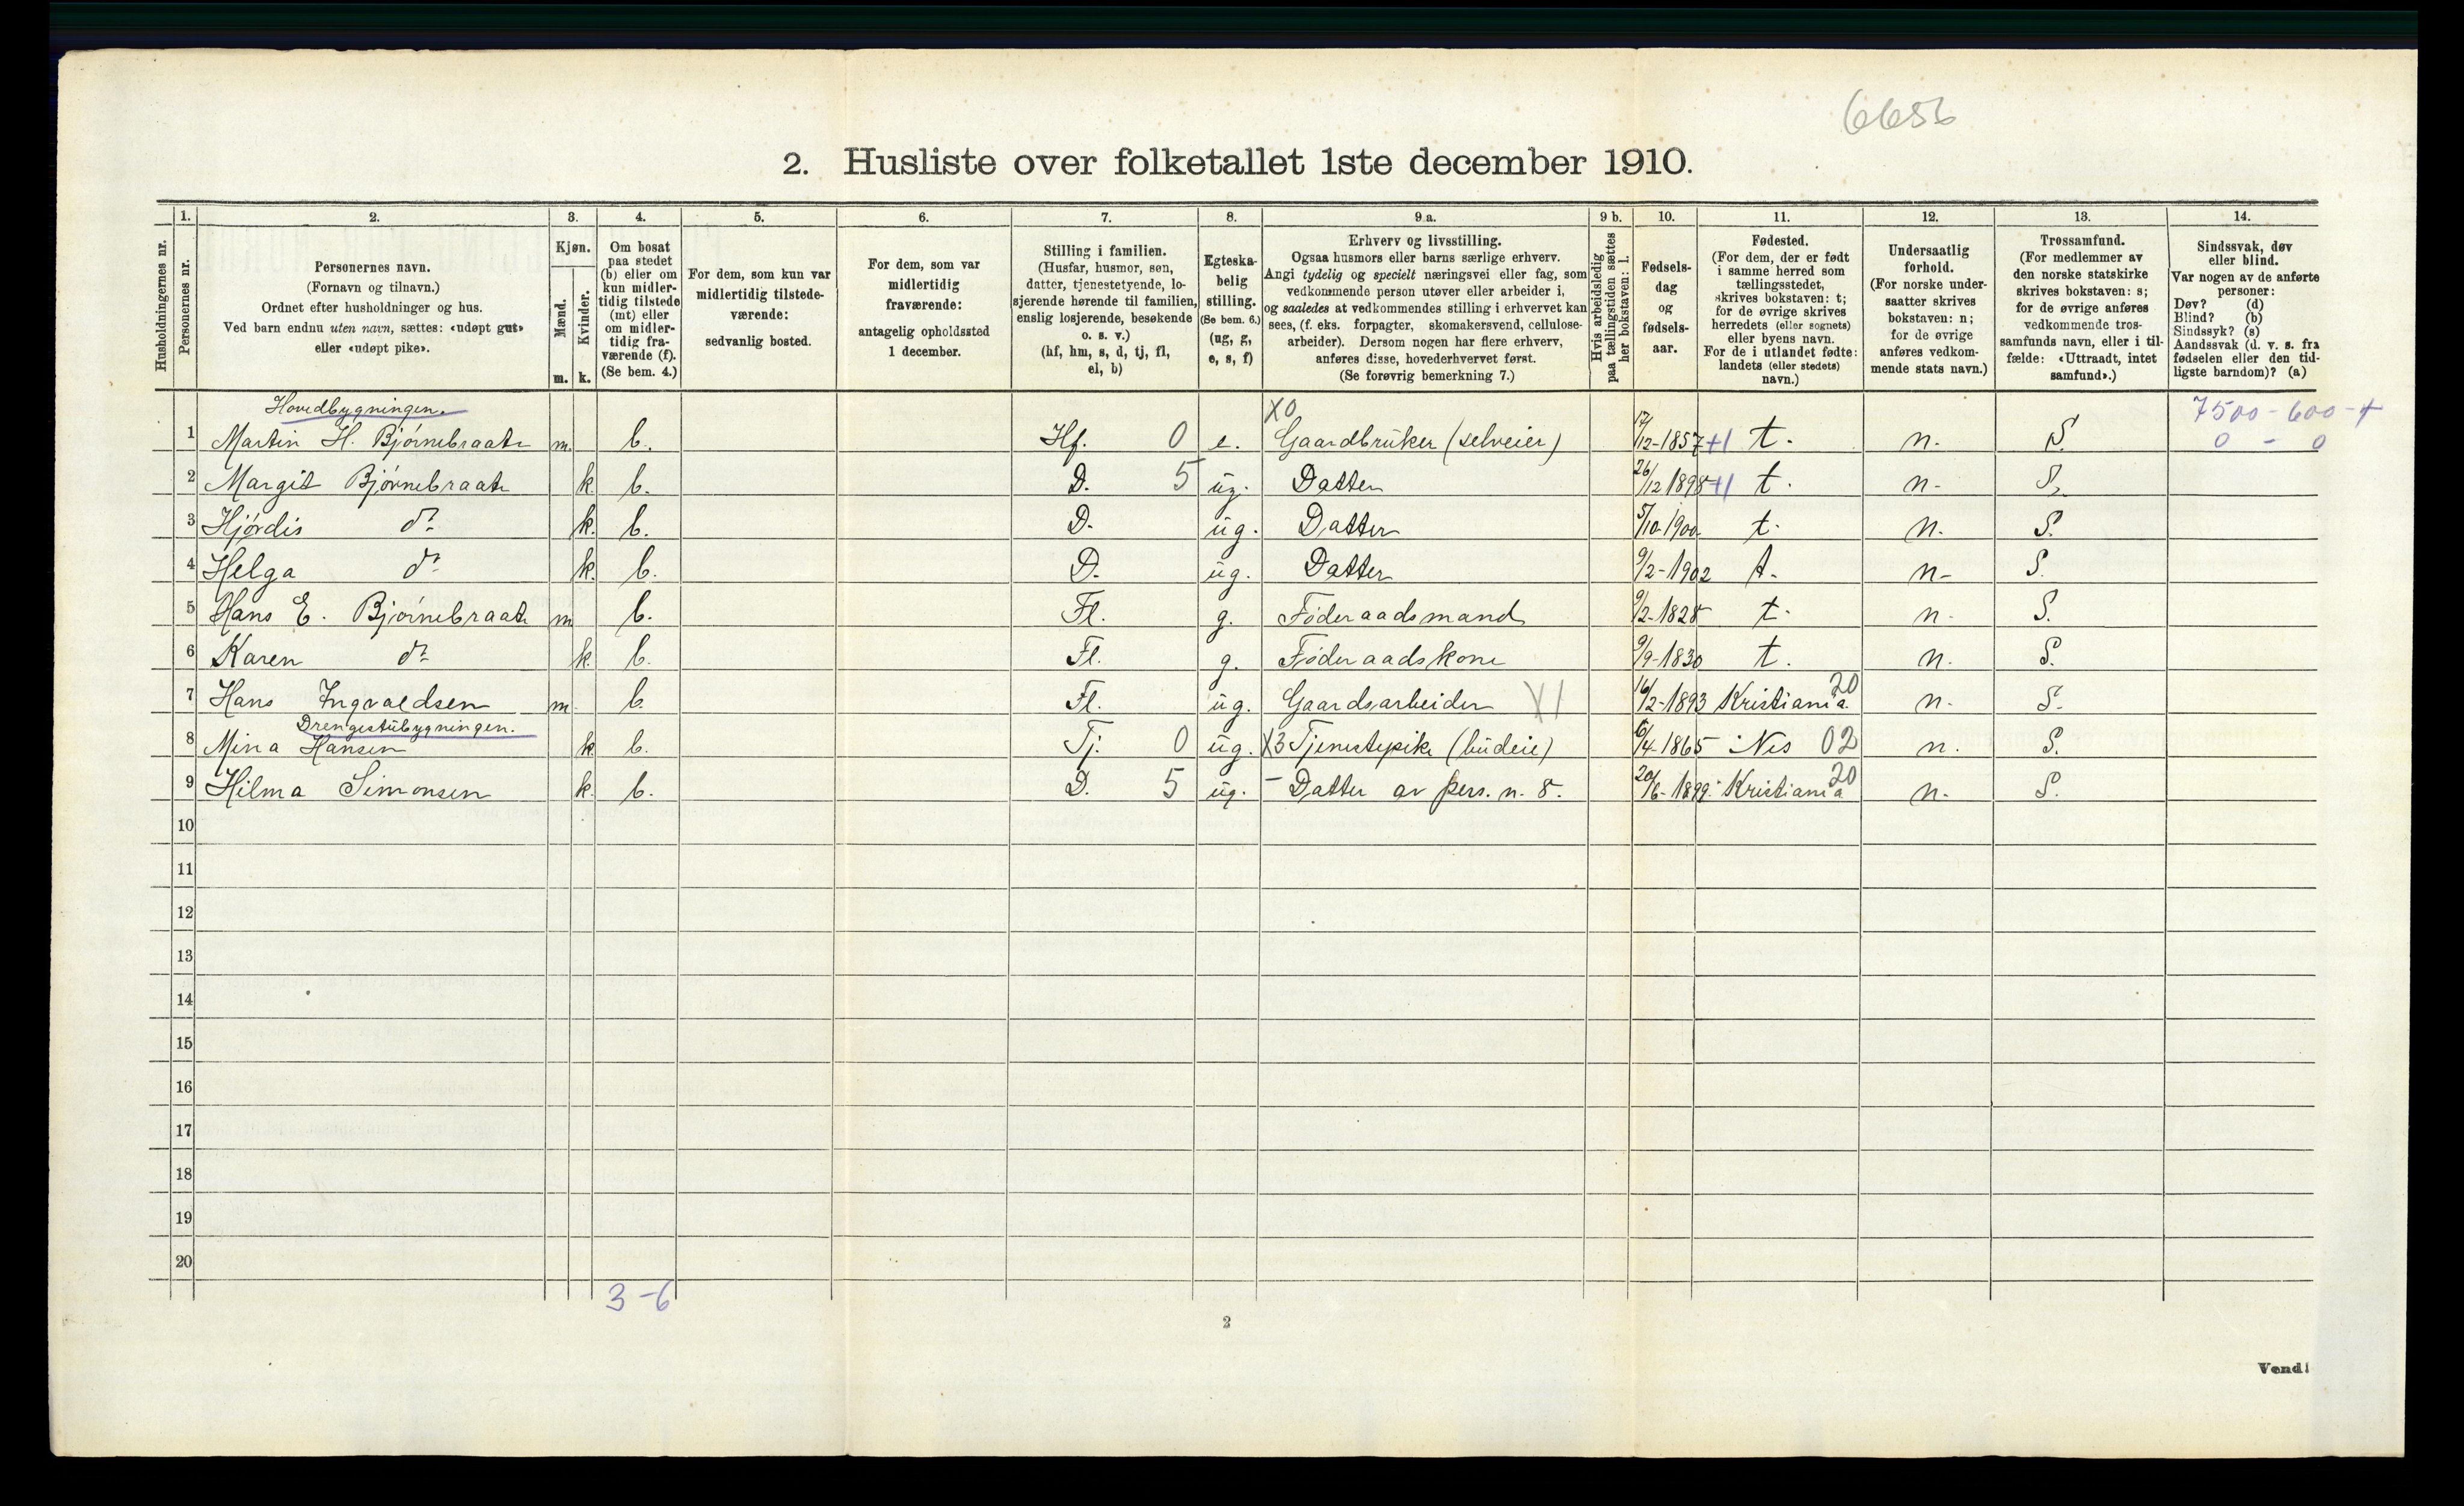 6656
2. Husliste over folketallet 1ste december 1910.
Husholdningernes nr.
1.
Personernes nr.
2.
Personernes navn.
(Fornavn og tilnavn.)
Ordnet efter husholdninger og hus.
Ved barn endnu uten navn, sættes: «udøpt gut»
eller «udøpt pike».
3.
Kjøn.
Mænd.
Kvinder.
m. k.
4.
Om bosat
paa stedet
(b) eller om
kun midler-
tidig tilstede
(mt) eller
om midler-
tidig fra-
værende (f).
(Se bem. 4.)
5.
For dem, som kun var
midlertidig tilstede-
værende:
sedvanlig bosted.
6.
For dem, som var
midlertidig
fraværende:
antagelig opholdssted
1 december.
7.
Stilling i familien.
(Husfar, husmor, søn,
datter, tjenestetyende, lo-
sjerende hørende til familien,
enslig losjerende, besøkende
o. s. v.)
(hf, hm, s, d, tj, fl,
el, b)
8.
Egteska-
belig
stilling.
(Se bem. 6.)
(ug, g,
e, s, f)
9 a.
Erhverv og livsstilling.
Ogsaa husmors eller barns særlige erhverv.
Angi tydelig og specielt næringsvei eller fag, som
vedkommende person utøver eller arbeider i,
og saaledes at vedkommendes stilling i erhvervet kan
sees, (f. eks. forpagter, skomakersvend, cellulose-
arbeider). Dersom nogen har flere erhverv,
anføres disse, hovederhvervet først.
(Se forøvrig bemerkning 7.)
9 b.
Hvis arbeidsledig
paa tællingstiden sættes
her bokstaven: l.
10.
Fødsels-
dag
og
fødsels-
aar.
11.
Fødested.
(For dem, der er født
i samme herred som
tællingsstedet,
skrives bokstaven: t;
for de øvrige skrives
herredets (eller sognets)
eller byens navn.
For de i utlandet fødte:
landets (eller stedets)
navn.)
12.
Undersaatlig
forhold.
(For norske under-
saatter skrives
bokstaven: n;
for de øvrige
anføres vedkom-
mende stats navn.)
13.
Trossamfund.
(For medlemmer av
den norske statskirke
skrives bokstaven: s;
for de øvrige anføres
vedkommende tros-
samfunds navn, eller i til-
fælde: «Uttraadt, intet
samfund».)
14.
Sindssvak, døv
eller blind.
Var nogen av de anførte
personer:
Døv? (d)
Blind? (b)
Sindssyk? (s)
Aandssvak (d. v. s. fra
fødselen eller den tid-
ligste barndom)? (a)
Hovedbygningen. X0 7500-600-+
1 Martin H. Bjørnebraate m. b. Hf. 0 e. Gaardbruker (selveier) 17/12-1857 +1 t. n. S. 0 - 0
2 Margit Bjørnebraate k. b. D. 5 ug. Datter 26/12 1898 +1 t. n. S.
3 Hjørdis do k. b. D. ug. Datter 5/10-1900 t. n. S.
4 Helga do k. b. D. ug. Datter 9/2-1902 t. n. S.
5 Hans E. Bjørnebraate m b. Fl. g. Føderaadsmand 9/2-1828 t. n. S.
6 Karen do k. b. Fl. g. Føderaadskone 9/9-1830 t. n. S.
7 Hans Ingvaldsen m. b. Fl. ug. Gaardsarbeider X1 16/2-1893 Kristiania 20 n. S.
Drengestubygningen.
8 Mina Hansen k. b. Tj. 0 ug. X3 Tjenestepike (budeie) 6/4-1865 Nes 02 n. S.
9 Hilma Simonsen k. b. D. 5 ug. - Datter av pers. n. 8. 20/6-1899 Kristiania 20 n. S.
10
11
12
13
14
15
16
17
18
19
20
3-6
2
Vend!